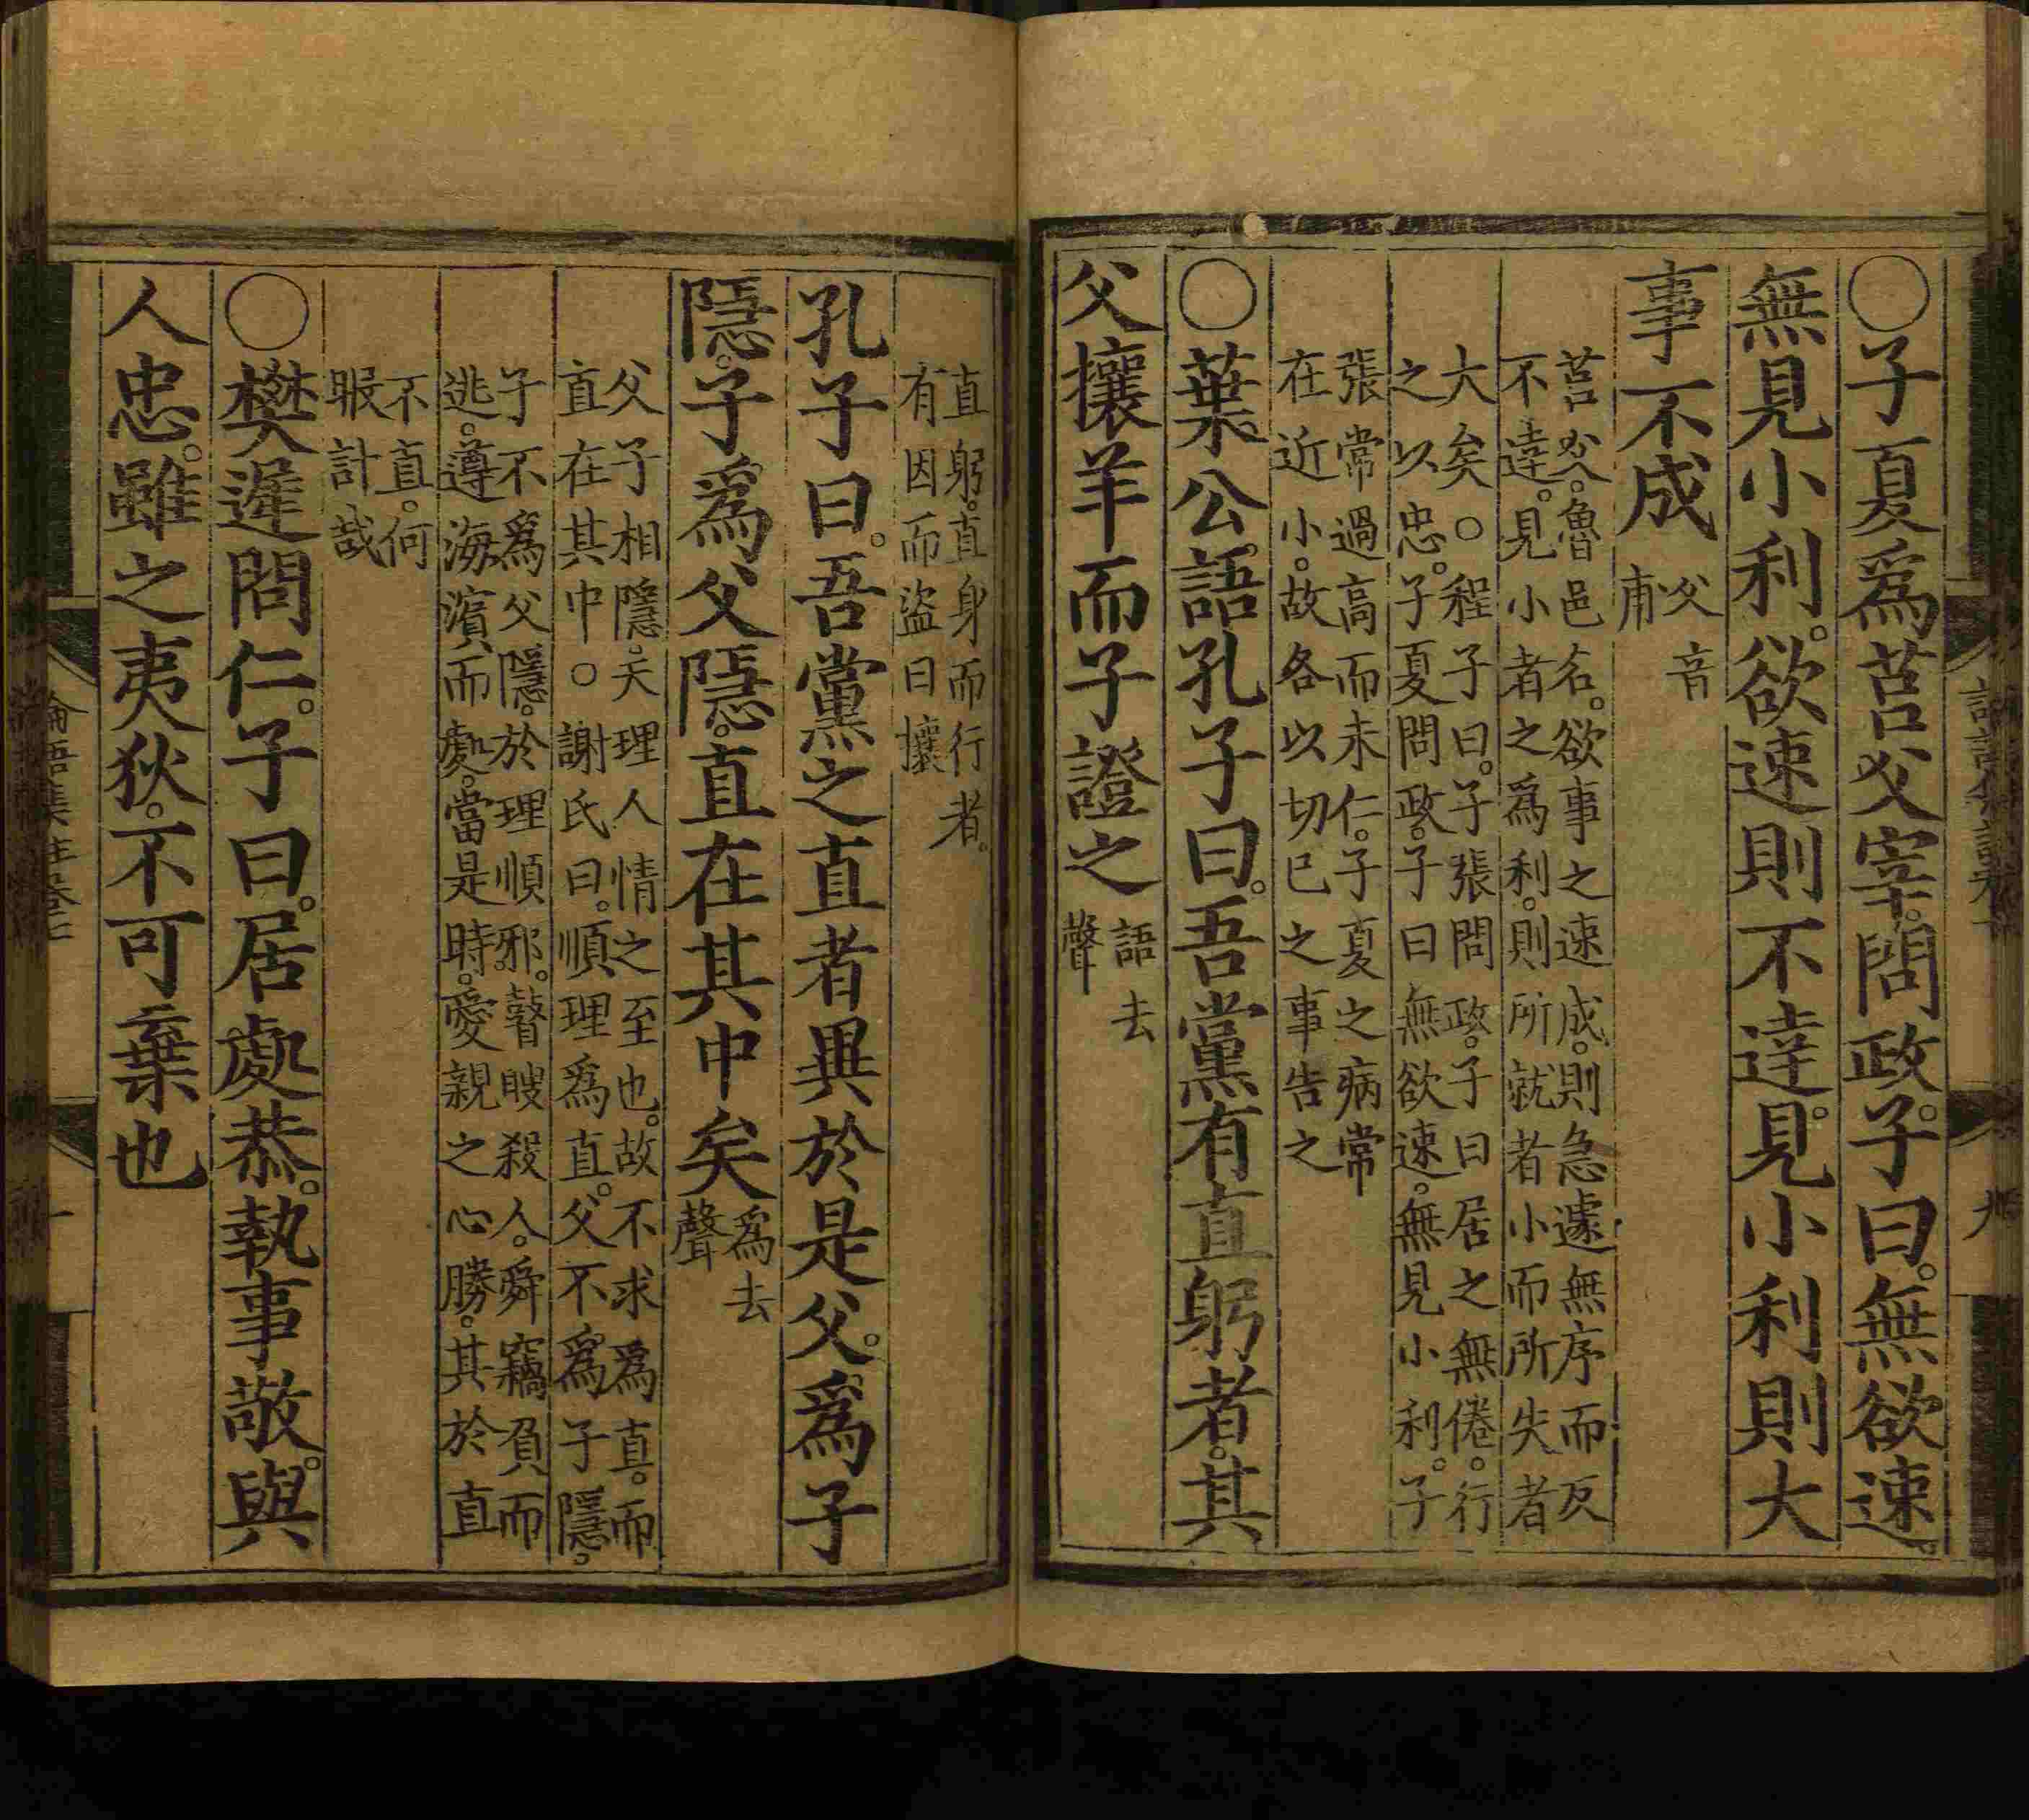 ○子夏爲莒父宰。問政。子曰。無欲速。
無見小利。欲速則不達。見小利則大
事不成
父音
甫
莒父。魯邑名。欲事之速成。則急遽無序而反
不達。見小者之爲利。則所就者小而所失者
大矣。○程子曰。子張問政。子曰居之無倦。行
之以忠。子夏問政。子曰無欲速。無見小利。子
張常過高而未仁。子夏之病常
在近小。故各以切己之事告之
○葉公語孔子曰。吾黨有直躬者。其
父攘羊而子證之
語去
聲
直躬。直身而行者。
有因而盜曰攘
孔子曰。吾黨之直者異於是。父爲子
隱。子爲父隱。直在其中矣
爲去
聲
父子相隱。天理人情之至也。故不求爲直。而
直在其中。○謝氏曰。順理爲直。父不爲子隱。
子不爲父隱。於理順邪。瞽瞍殺人。舜竊負而
逃。遵海濱而處。當是時。愛親之心勝。其於直
不直。何
暇計哉
○樊遲問仁。子曰。居處恭。執事敬。與
人忠。雖之夷狄。不可棄也